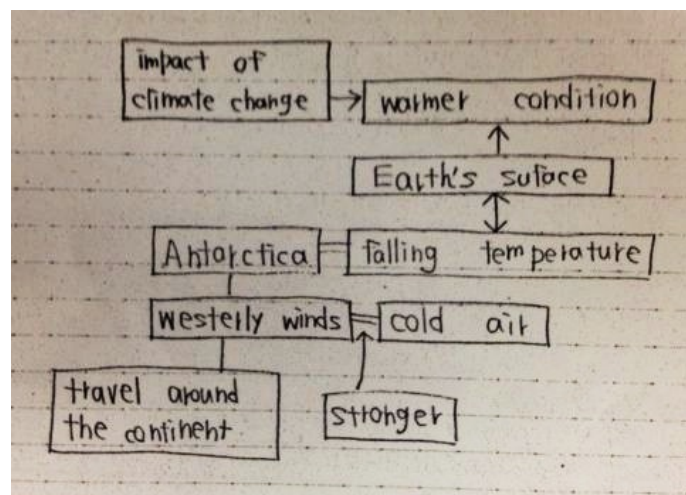 impact of
climate change
warmer condition
Earth's suface
Antarctica
falling temperature
westerly winds
cold air
travel around
the continent
stronger